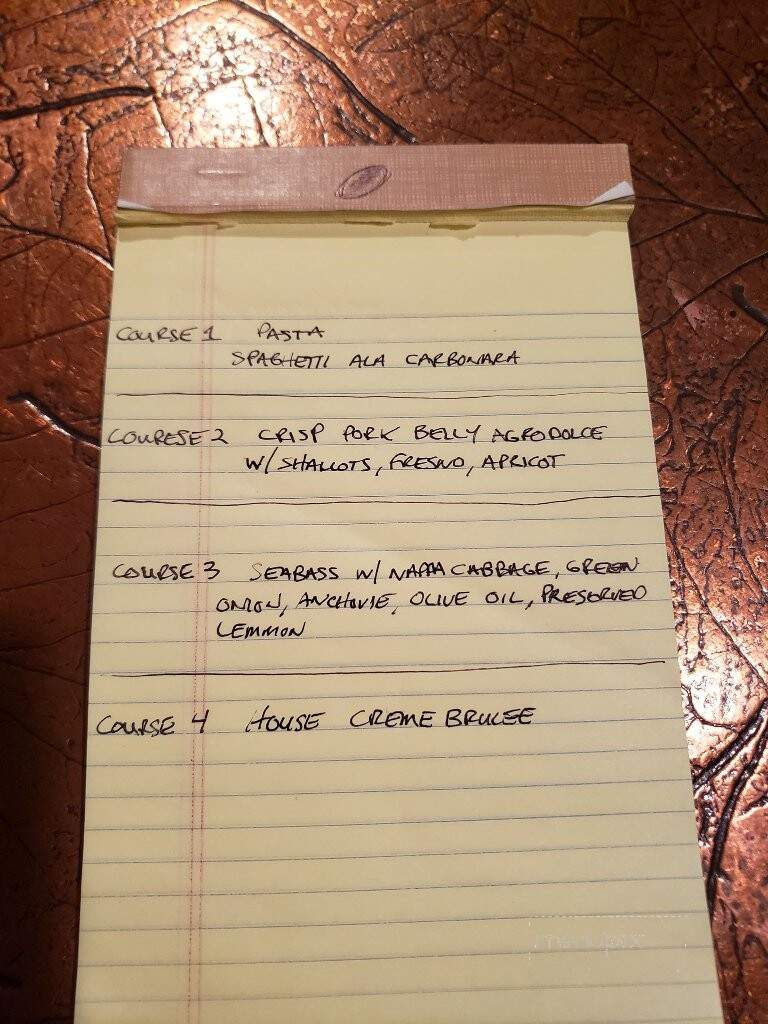 COURSE 1 PASTA
SPAGHETTI ALA CARBONARA
COURESE 2 CRISP PORK BELLY AGRODOLCE
W/ SHALLOTS, FRESNO, APRICOT
COURSE 3 SEABASS W/ NAPPA CABBAGE, GREEN
ONION, ANCHOVIE, OLIVE OIL, PRESERVED
LEMMON
COURSE 4 HOUSE CREME BRULEE